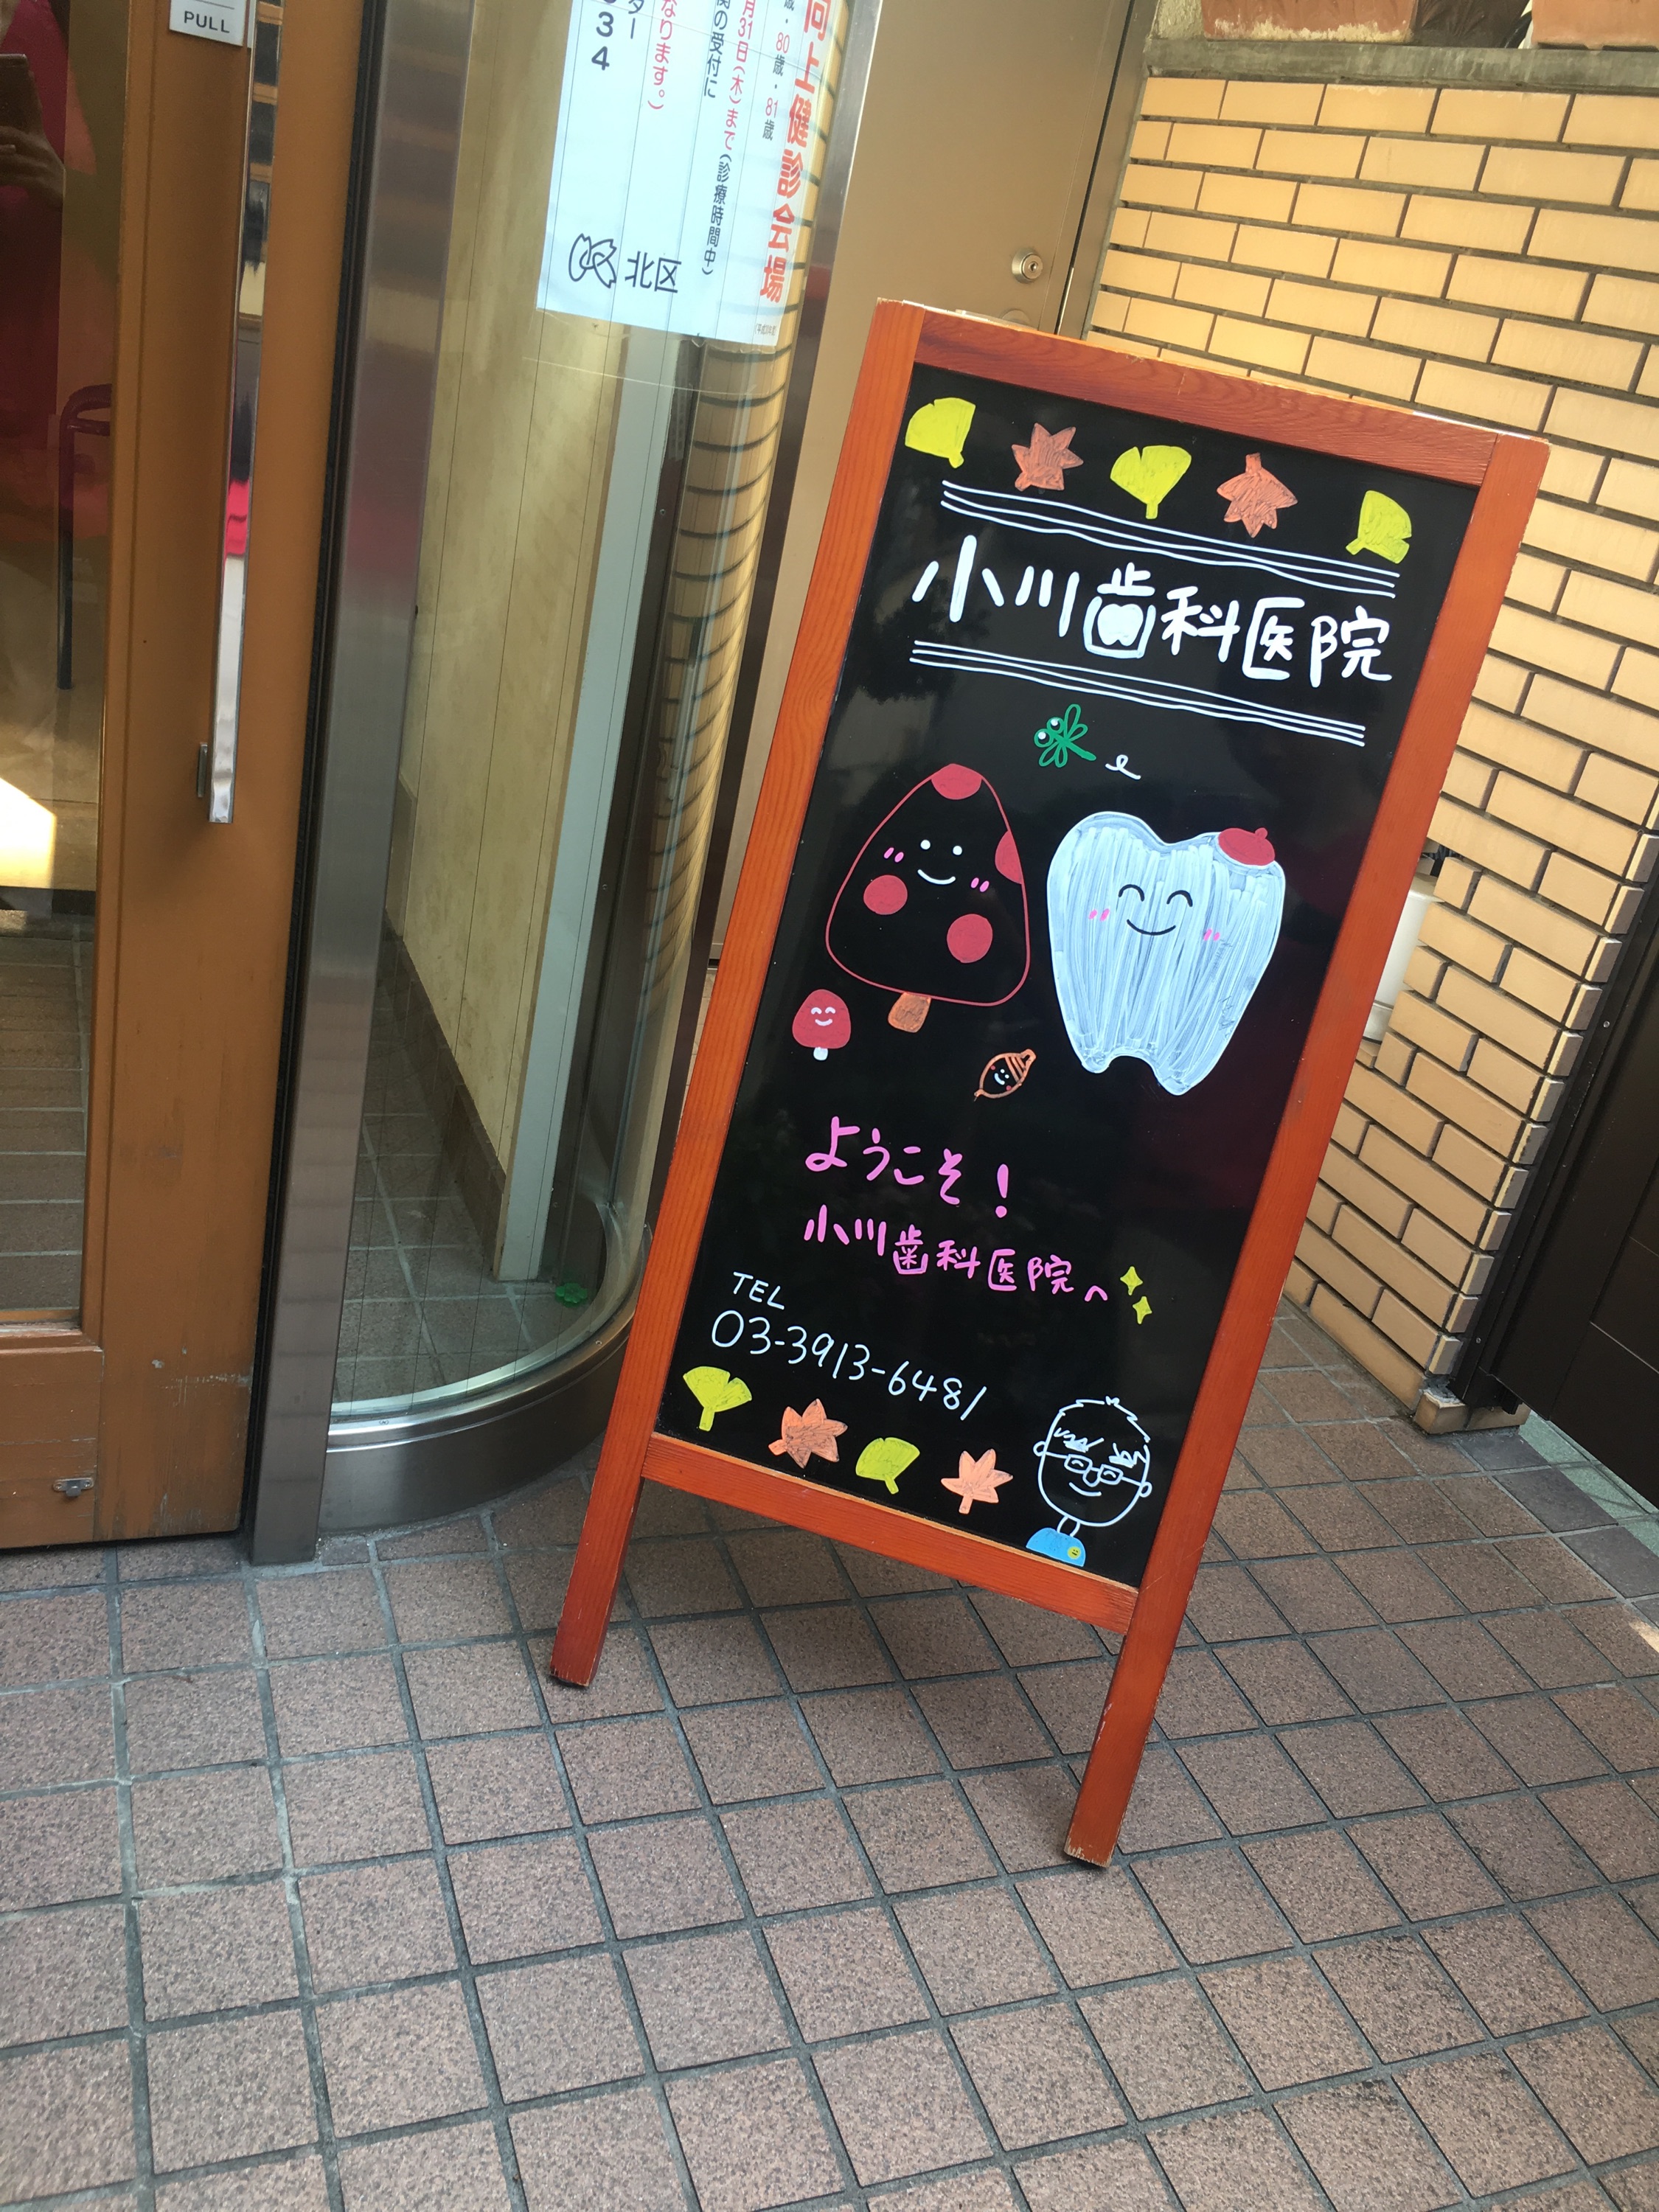 PULL
向上健診会場
歳・80歳・81歳
月31日(木)まで(診療時間中)
関の受付に
なります。)
ター
34
北区
小川歯科医院
ようこそ!
小川歯科医院へ
TEL
03-3913-6481